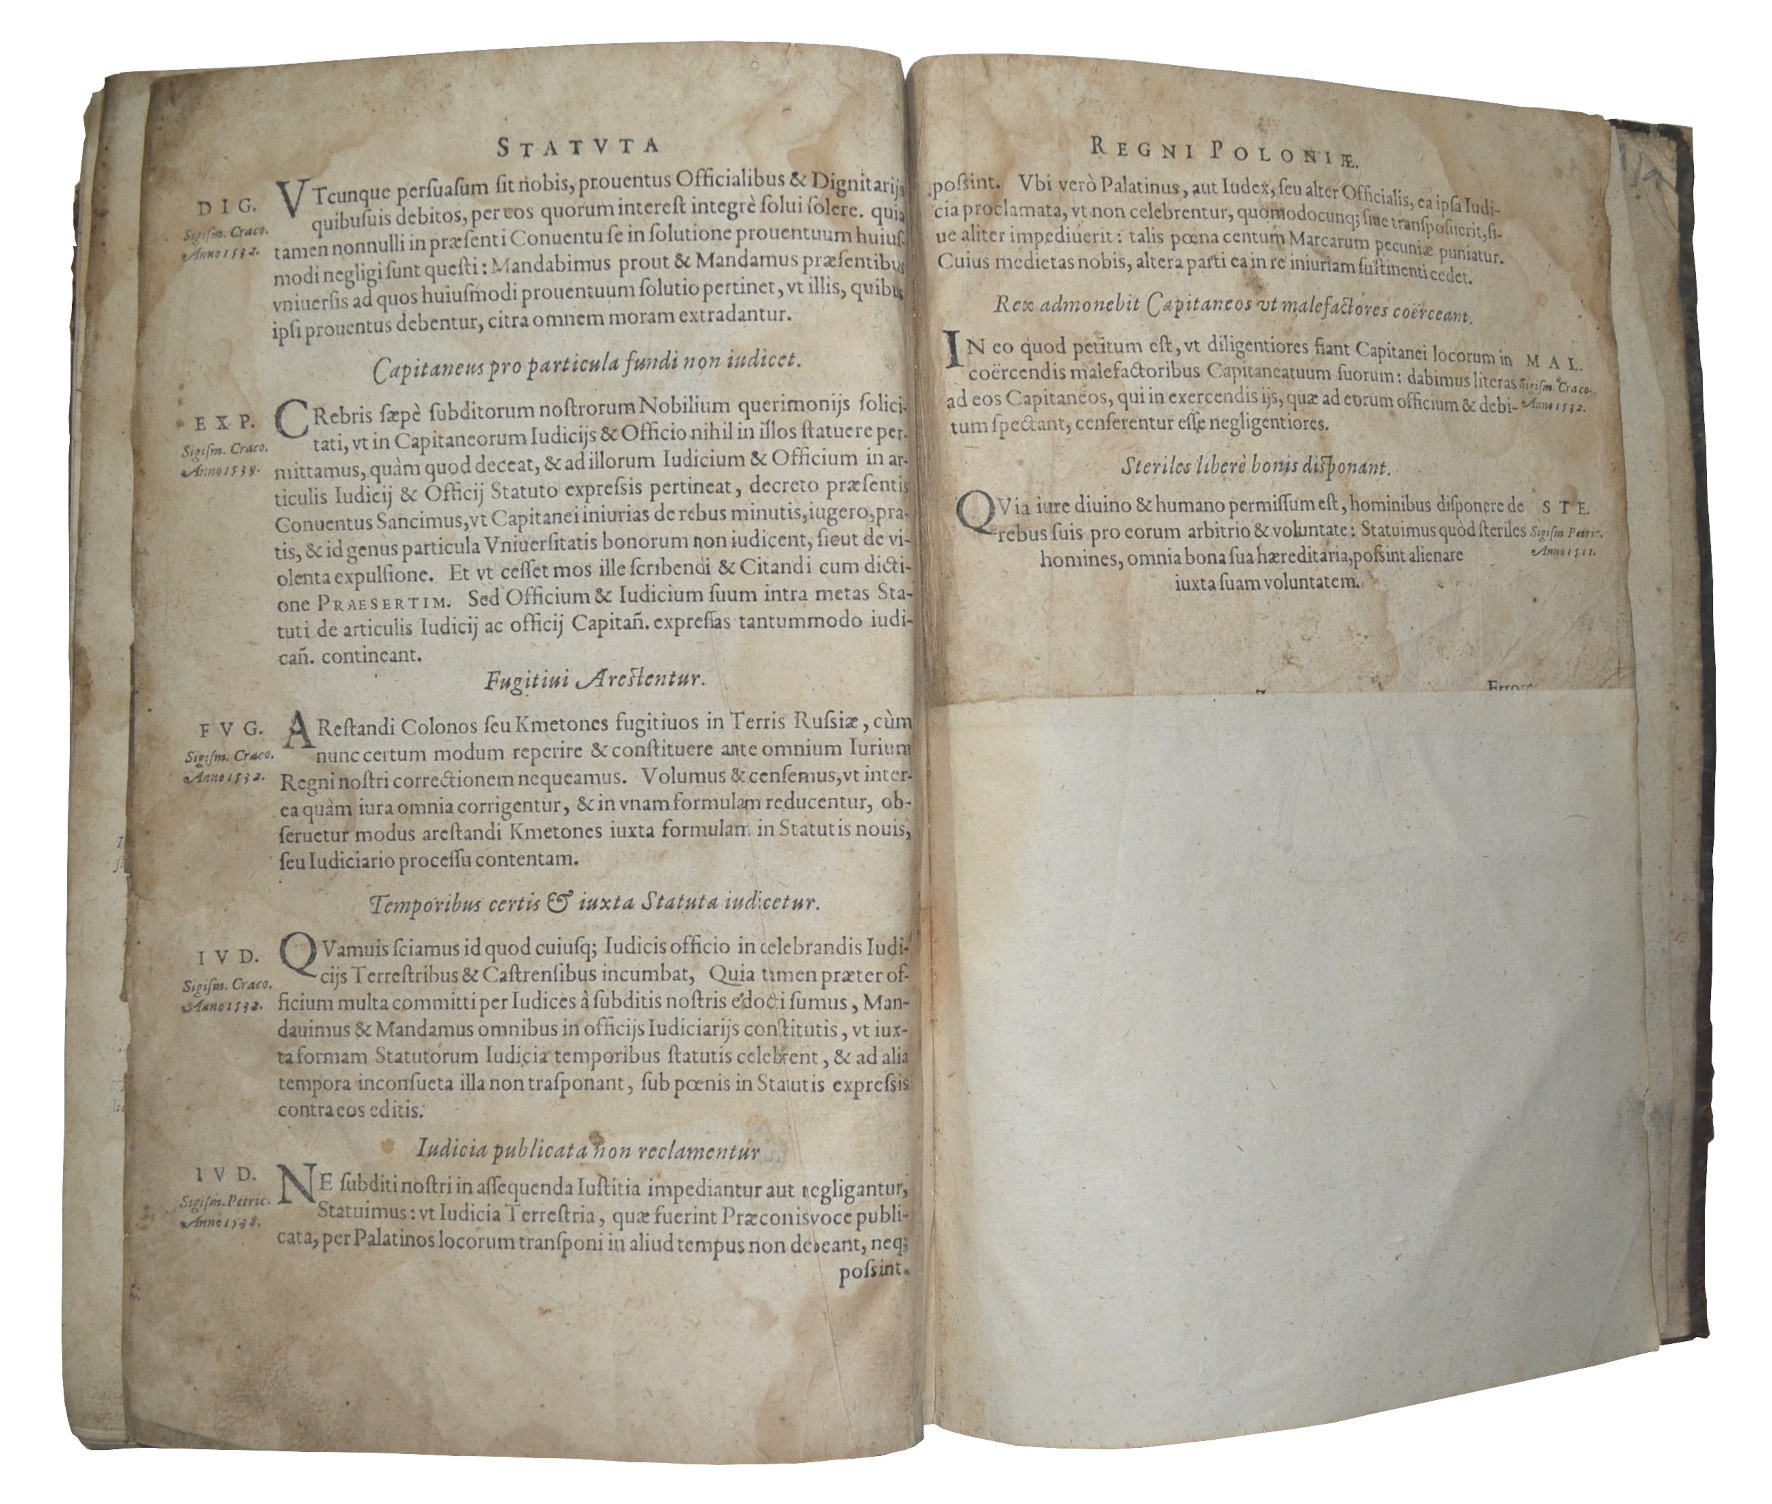 STATVTA
DIG.
Sigism. Craco.
Anno 1532.
VTcunque persuasum sit nobis, prouentus Officialibus & Dignitarijs
quibusuis debitos, per eos quorum interest integrè solui solere. quia
tamen nonnulli in præsenti Conuentu se in solutione prouentuum huius-
modi negligi sunt questi: Mandabimus prout & Mandamus præsentibus
vniuersis ad quos huiusmodi prouentuum solutio pertinet, vt illis, quibus
ipsi prouentus debentur, citra omnem moram extradantur.
Capitaneus pro particula fundi non iudicet.
EXP.
Sigism. Craco.
Anno 1539.
CRebris sæpè subditorum nostrorum Nobilium querimonijs solici-
tati, vt in Capitaneorum Iudicijs & Officio nihil in illos statuere per-
mittamus, quàm quod deceat, & ad illorum Iudicium & Officium in ar-
ticulis Iudicij & Officij Statuto expressis pertineat, decreto præsentis
Conuentus Sancimus, vt Capitanei iniurias de rebus minutis, iugero, pra-
tis, & id genus particula Vniuersitatis bonorum non iudicent, sicut de vi-
olenta expulsione. Et vt cesset mos ille scribendi & Citandi cum dicti-
one PRAESERTIM. Sed Officium & Iudicium suum intra metas Sta-
tuti de articulis Iudicij ac officij Capitañ. expressas tantummodo iudi-
cañ. contineant.
Fugitiui Arestentur.
FVG.
Sigism. Craco.
Anno 1532.
ARestandi Colonos seu Kmetones fugitiuos in Terris Russiæ, cùm
nunc certum modum reperire & constituere ante omnium Iurium
Regni nostri correctionem nequeamus. Volumus & censemus, vt inter-
ea quàm iura omnia corrigentur, & in vnam formulam reducentur, ob-
seruetur modus arestandi Kmetones iuxta formulam in Statutis nouis,
seu Iudiciario processu contentam.
Temporibus certis & iuxta Statuta iudicetur.
IVD.
Sigism. Craco.
Anno 1532.
QVamuis sciamus id quod cuiusq; Iudicis officio in celebrandis Iudi-
cijs Terrestribus & Castrensibus incumbat, Quia tamen præter of-
ficium multa committi per Iudices à subditis nostris edocti sumus, Man-
dauimus & Mandamus omnibus in officijs Iudiciarijs constitutis, vt iux-
ta formam Statutorum Iudicia temporibus statutis celebrent, & ad alia
tempora inconsueta illa non trasponant, sub pœnis in Statutis expressis
contra eos editis.
Iudicia publicata non reclamentur
IVD.
Sigism. Petric.
Anno 1538.
NE subditi nostri in assequenda Iustitia impediantur aut negligantur,
Statuimus: vt Iudicia Terrestria, quæ fuerint Præconis voce publi-
cata, per Palatinos locorum transponi in aliud tempus non debeant, neq;
possint.
REGNI POLONIÆ.
possint. Vbi verò Palatinus, aut Iudex, seu alter Officialis, ea ipsa Iudi-
cia proclamata, vt non celebrentur, quomodocunq; siue transposuerit, si-
ue aliter impediuerit: talis pœna centum Marcarum pecuniæ puniatur.
Cuius medietas nobis, altera parti ea in re iniuriam sustinenti cedet.
Rex admonebit Capitaneos vt malefactores coërceant.
IN eo quod petitum est, vt diligentiores fiant Capitanei locorum in
coërcendis malefactoribus Capitaneatuum suorum: dabimus literas
ad eos Capitaneos, qui in exercendis ijs, quæ ad eorum officium & debi-
tum spectant, censerentur esse negligentiores.
MAL.
Sigism. Craco.
Anno 1532.
Steriles liberè bonis disponant.
QVia iure diuino & humano permissum est, hominibus disponere de
rebus suis pro eorum arbitrio & voluntate: Statuimus quòd steriles
homines, omnia bona sua hæreditaria, possint alienare
iuxta suam voluntatem.
STE.
Sigism. Petric.
Anno 1511.